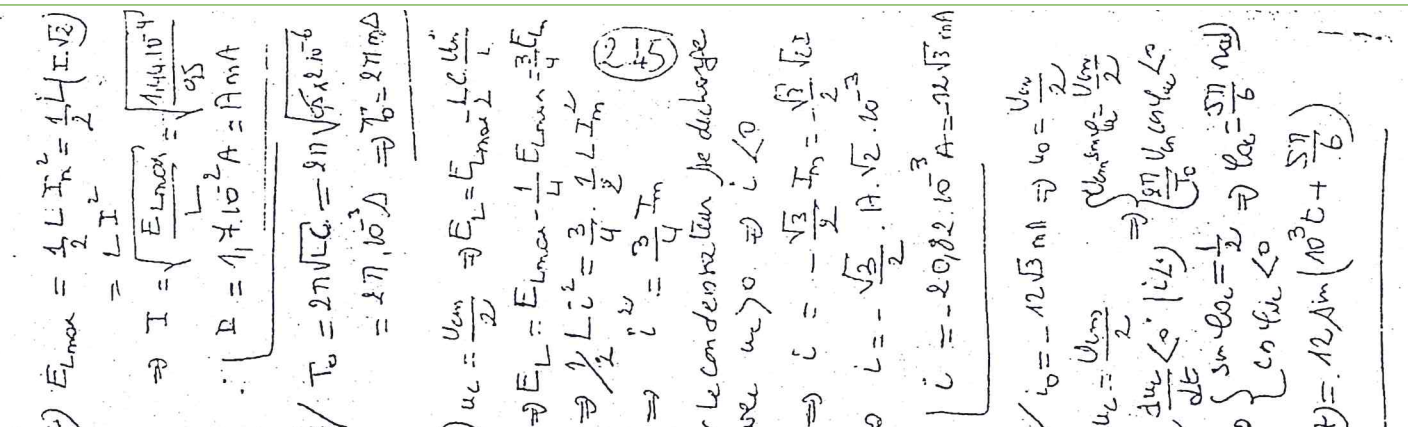 E_Lmax = 1/2 L I_m² = 1/2 L (I.√2)
= L I²
⇒ I = √(E_Lmax / L) = √(1,44.10⁻⁴ / 0,5)
I = 1,7.10⁻² A = 17 mA
T₀ = 2π√LC = 2π√(0,5×2.10⁻⁶)
= 2π.10⁻³ s ⇒ T₀ = 2π ms
u_c = U_cm/2 ⇒ E_L = E_Lmax -
⇒ E_L = E_Lmax - 1/4 E_Lmax = 3/4 E_Lm
⇒ 1/2 L i² = 3/4 . 1/2 L I_m²
⇒ i² = 3/4 I_m
245
le condensateur se décharge
u_c > 0 ⇒ i < 0
⇒ i = - √3/2 I_m = - √3/2 √2 I
i = - √3/2 . 17.√2.10⁻³
i = - 20,82.10⁻³ A = - 12√3 mA
i₀ = - 12√3 mA ⇒ u₀ = U_cm/2
u_c = U_cm/2
du_c/dt < 0 (i<0) ⇒ { U_cm sin φ_uc = U_cm/2
2π/T₀ U_cm cos φ_uc < 0
{ sin φ_uc = 1/2 ⇒ φ_uc = 5π/6 rad
cos φ_uc < 0
= 12 sin (10³t + 5π/6)